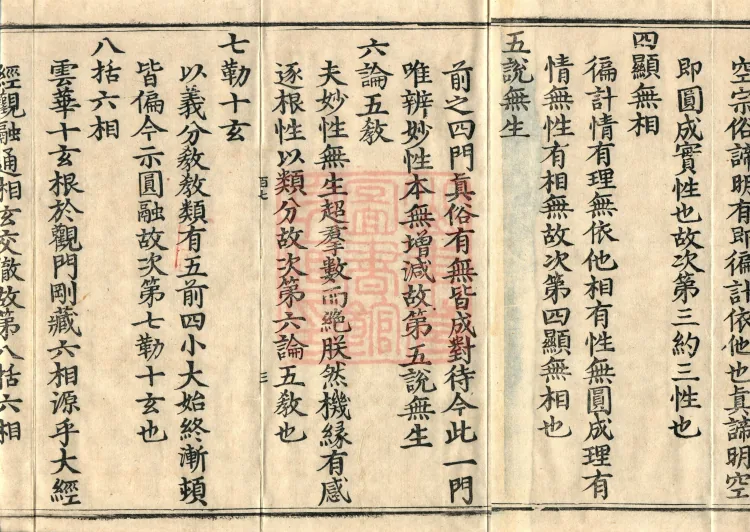 空宗俗諦明有即徧計依他也真諦明空
即圓成實性也故次第三約三性也
四顯無相
徧計情有理無依他相有性無圓成理有
情無性有相無故次第四顯無相也
五說無生
前之四門真俗有無皆成對待今此一門
唯辨妙性本無增減故第五說無生
六論五教
夫妙性無生超羣數而絕朕然機緣有感
逐根性以類分故次第六論五教也
七勒十玄
以義分教教類有五前四小大始終漸頓
皆偏今示圓融故次第七勒十玄也
八括六相
雲華十玄根於觀門剛藏六相源乎大經
經觀融通相玄交徹故第八括六相
百七
三